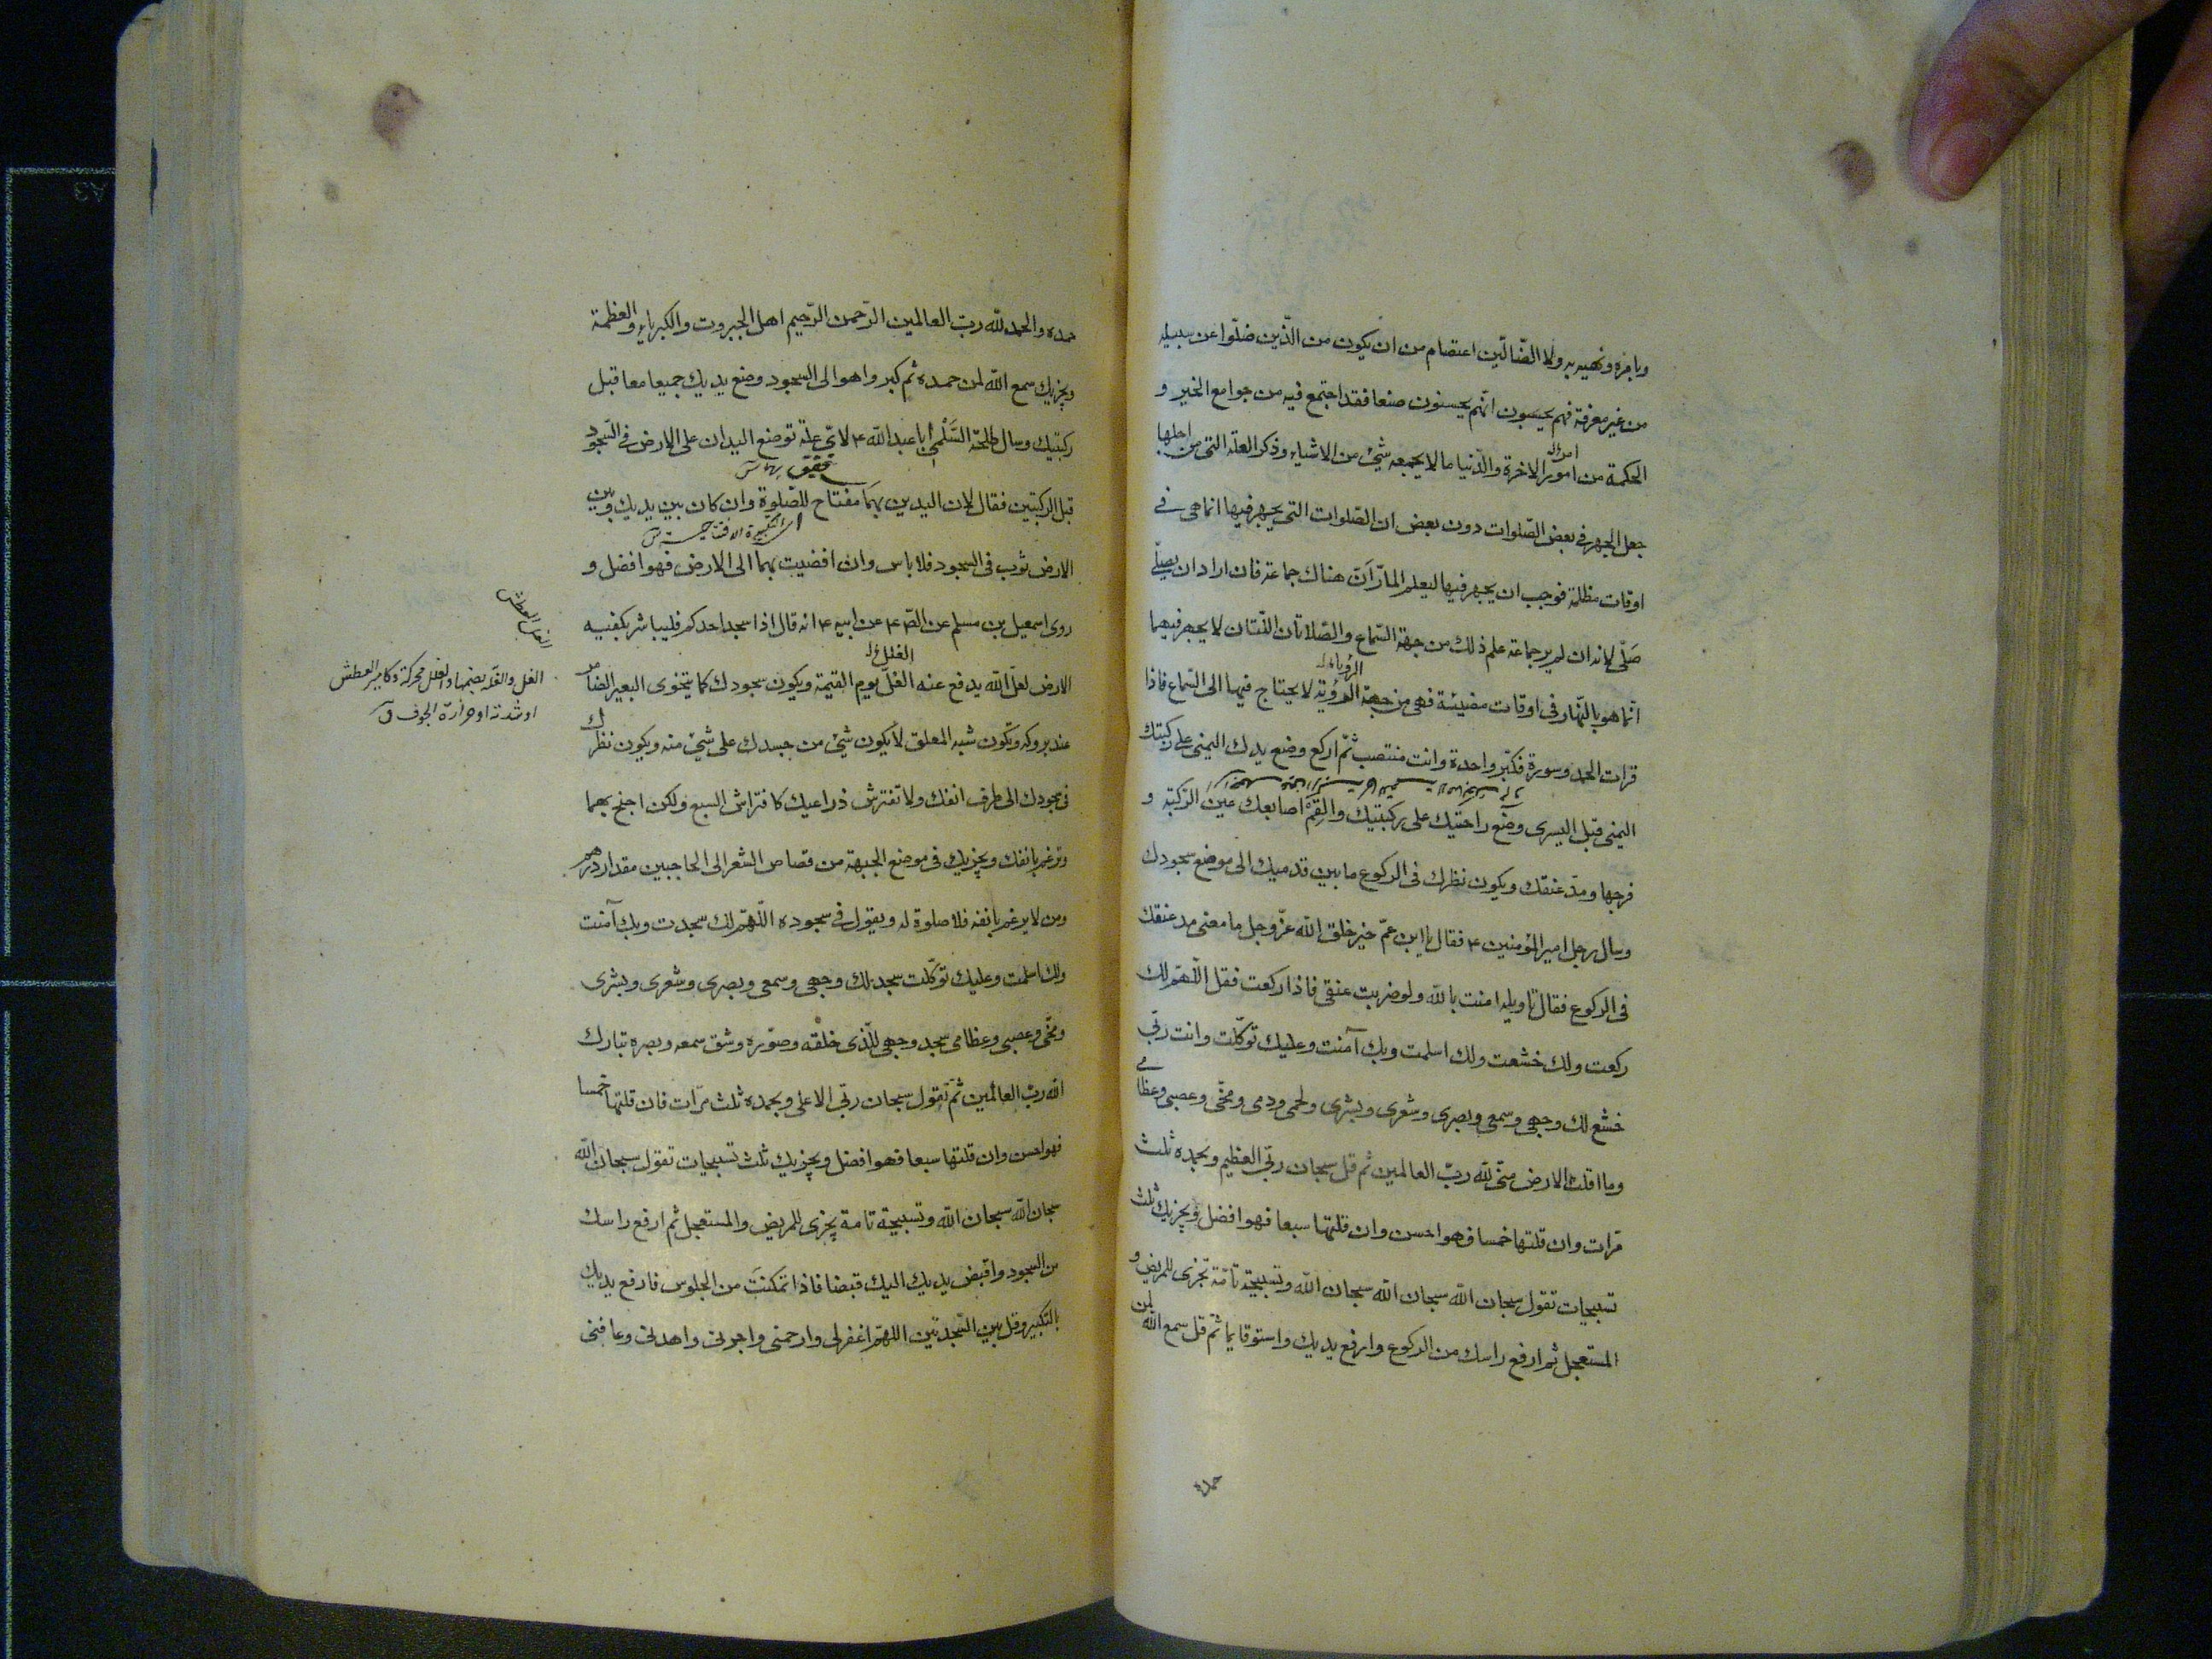 وبامره ونهيه به ولا الضّالّين اعتصام من ان يكون من الّذين ضلّوا عن سبيله
من غير معرفة فهم يحسبون انّهم يحسنون صنعا فقد اجتمع فيه من جوامع الخير و
الحكمة من امور الاخرة والدّنيا ما لا يجمعه شئ من الاشياء وذكر العلّة التي من اجلها
امر
جعل الجهر في بعض الصّلوات دون بعض ان الصّلوات التي يجهر فيها انما هي في
اوقات مظلمة فوجب ان يجهر فيها ليعلم المارّ انّ هناك جماعة فان اراد ان يصلّي
صلّى لانه ان لم ير جماعة علم ذلك من جهة السّماع والصّلاتان اللّتان لا يجهر فيهما
انّما هو بالنّهار في اوقات مضيئة فهي من جهة الرؤية لا يحتاج فيها الى السّماع فاذا
قرات الحمد وسورة فكبّر واحدة وانت منتصب ثمّ اركع وضع يدك اليمنى على ركبتك
اليمنى قبل اليسرى وضع راحتيك على ركبتيك والقم اصابعك عين الرّكبة و
فرجها ومدّ عنقك ويكون نظرك في الركوع ما بين قدميك الى موضع سجودك
وسال رجل امير المؤمنين ۴ فقال يا ابن عمّ خير خلق الله عزّ وجل ما معنى مد عنقك
في الركوع فقال تاويله امنت بالله ولو ضربت عنقي فاذا ركعت فقل اللّهمّ لك
ركعت ولك خشعت ولك اسلمت وبك آمنت وعليك توكّلت وانت ربّي
خشع لك وجهي وسمعي وبصري وشعري وبشري ولحمي ودمي ومخّي وعصبي وعظامي
وما اقلت الارض منّي لله ربّ العالمين ثم قل سبحان ربّي العظيم وبحمده ثلث
مرّات وان قلتها خمسا فهو احسن وان قلتها سبعا فهو افضل ويجزيك ثلث
تسبيحات تقول سبحان الله سبحان الله سبحان الله وتسبيحة تامّة تجزي للمريض و
المستعجل ثم ارفع راسك من الركوع وارفع يديك واستو قايما ثمّ قل سمع الله لمن
حمده
حمده والحمد لله ربّ العالمين الرّحمن الرّحيم اهل الجبروت والكبرياء والعظمة
ويجزيك سمع الله لمن حمده ثم كبر واهو الى السجود وضع يديك جميعا معا قبل
ركبتيك وسال طلحة السّلمي ابا عبد الله ۴ لايّ علّة توضع اليدان على الارض في السّجود
قبل الركبتين فقال لان اليدين بهما مفتاح الصّلوة وان كان بين يديك وبين
الارض ثوب في السجود فلا باس وان افضيت بهما الى الارض فهو افضل و
روى اسمعيل بن مسلم عن الصّ ۴ عن ابيه ۴ انه قال اذا سجد احدكم فليباشر بكفيه
الارض لعلّ الله يدفع عنه الغلّ يوم القيمة ويكون سجودك كما يتخوى البعير الضامر
الغلل
الغل والغلّة بضمهما والغلل محركة وكامير العطش
او شدته او حرارة الجوف ق
عند بروكه وتكون شبه المعلق لا يكون شئ من جسدك على شئ منه ويكون نظرك
في سجودك الى طرف انفك ولا تفترش ذراعيك كافتراش السبع ولكن اجنح بهما
وترغم بانفك ويجزيك في موضع الجبهة من قصاص الشعر الى الحاجبين مقدار درهم
ومن لا يرغم بانفه فلا صلوة له ويقول في سجوده اللّهمّ لك سجدت وبك آمنت
ولك اسلمت وعليك توكّلت سجد لك وجهي وسمعي وبصري وشعري وبشري
ومخّي وعصبي وعظامي سجد وجهي للّذي خلقه وصوّره وشق سمعه وبصره تبارك
الله ربّ العالمين ثمّ تقول سبحان ربّي الاعلى وبحمده ثلث مرّات فان قلتها خمسا
فهو احسن وان قلتها سبعا فهو افضل ويجزيك ثلث تسبيحات تقول سبحان الله
سبحان الله سبحان الله وتسبيحة تامة يجزي للمريض والمستعجل ثم ارفع راسك
من السجود واقبض يديك اليك قبضا فاذا تمكنت من الجلوس فارفع يديك
بالتكبير وقل بين السّجدتين اللهمّ اغفر لي وارحمني واجرني واهدني وعافني